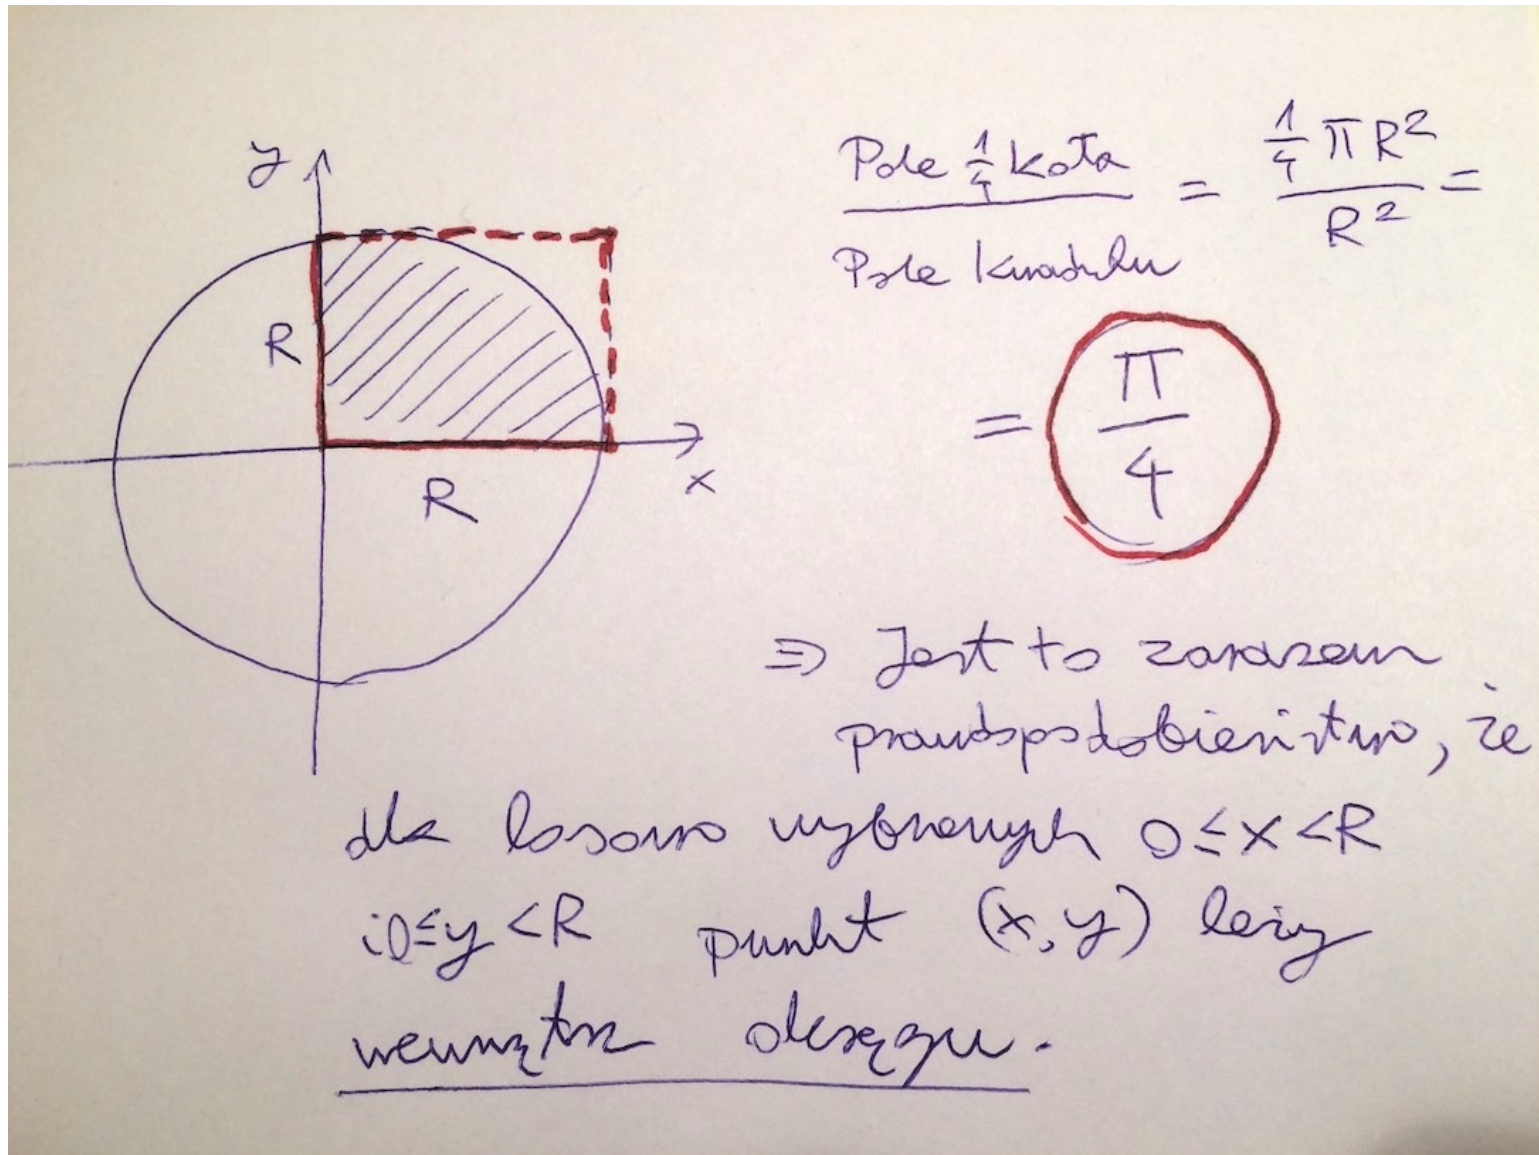 y
R
R
x
Pole 1/4 koła / Pole kwadratu = 1/4 π R² / R² =
= π/4
⇒ Jest to zarazem
prawdopodobieństwo, że
dla losowo wybranych 0 ≤ x < R
i 0 ≤ y < R punkt (x, y) leży
wewnątrz okręgu.